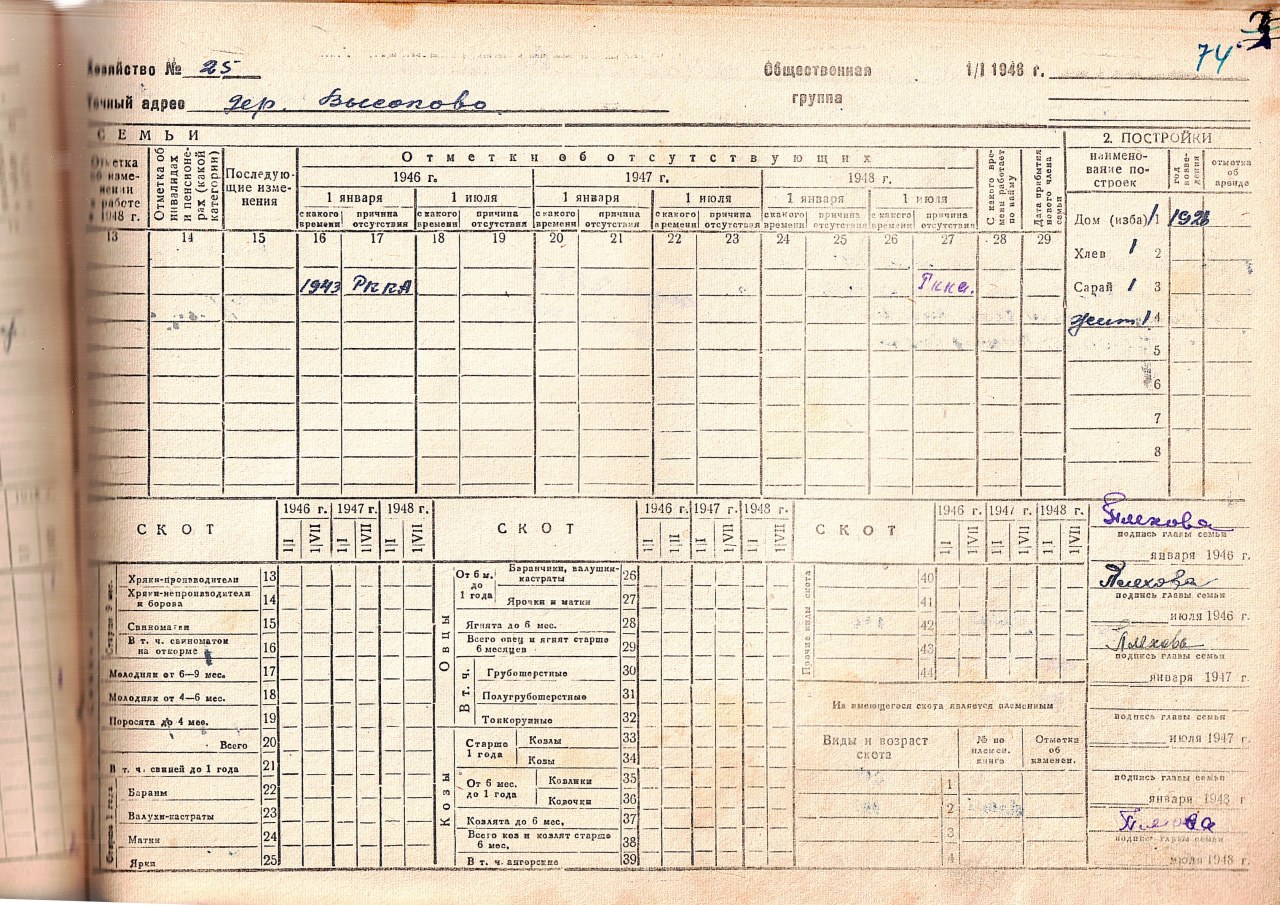 74
Хозяйство № 25
Общественная группа
1/I 1948 г.
Точный адрес дер. Высоково
СЕМЬИ
Отметка об изменении в работе в 1948 г.
Отметка об инвалидах и пенсионерах (какой категории)
Последующие изменения
Отметки об отсутствующих
1946 г. 1947 г. 1948 г.
1 января 1 июля 1 января 1 июля 1 января 1 июля
с какого времени причина отсутствия с какого времени причина отсутствия с какого времени причина отсутствия с какого времени причина отсутствия с какого времени причина отсутствия с какого времени причина отсутствия
С какого времени работает по найму
Дата прибытия нового члена семьи
13 14 15 16 17 18 19 20 21 22 23 24 25 26 27 28 29
1943 РККА Ркка.
2. ПОСТРОЙКИ
наименование построек
год возведения
отметка об аренде
Дом (изба) 1 1 1926
Хлев 1 2
Сарай 1 3
1 4
5
6
7
8
СКОТ
1946 г. 1947 г. 1948 г.
1|I 1|VII 1|I 1|VII 1|I 1|VII
Старше 9 мес.
Хряки-производители 13
Хряки-непроизводители и борова 14
Свиноматки 15
В т. ч. свиноматок на откорме 16
Молодняк от 6—9 мес. 17
Молодняк от 4—6 мес. 18
Поросята до 4 мес. 19
Всего 20
В т. ч. свиней до 1 года 21
Старше 1 года
Бараны 22
Валухи-кастраты 23
Матки 24
Ярки 25
СКОТ
1946 г. 1947 г. 1948 г.
1|I 1|VII 1|I 1|VII 1|I 1|VII
Овцы
От 6 м. до 1 года
Баранчики, валушки-кастраты 26
Ярочки и матки 27
Ягнята до 6 мес. 28
Всего овец и ягнят старше 6 месяцев 29
В т. ч.
Грубошерстные 30
Полугрубошерстные 31
Тонкорунные 32
Козы
Старше 1 года
Козлы 33
Козы 34
От 6 мес. до 1 года
Козлики 35
Козочки 36
Козлята до 6 мес. 37
Всего коз и козлят старше 6 мес. 38
В т. ч. ангорские 39
СКОТ
1946 г. 1947 г. 1948 г.
1|I 1|VII 1|I 1|VII 1|I 1|VII
Прочие виды скота
40
41
42
43
44
Из имеющегося скота является племенным
Виды и возраст скота
№ по племен. книге
Отметки об изменен.
1
2
3
4
Плехова
подпись главы семьи
января 1946 г.
Плехова
подпись главы семьи
июля 1946 г.
Плехова
подпись главы семьи
января 1947 г.
подпись главы семьи
июля 1947 г.
подпись главы семьи
января 1948 г
Плехова
подпись главы семьи
июля 1948 г.